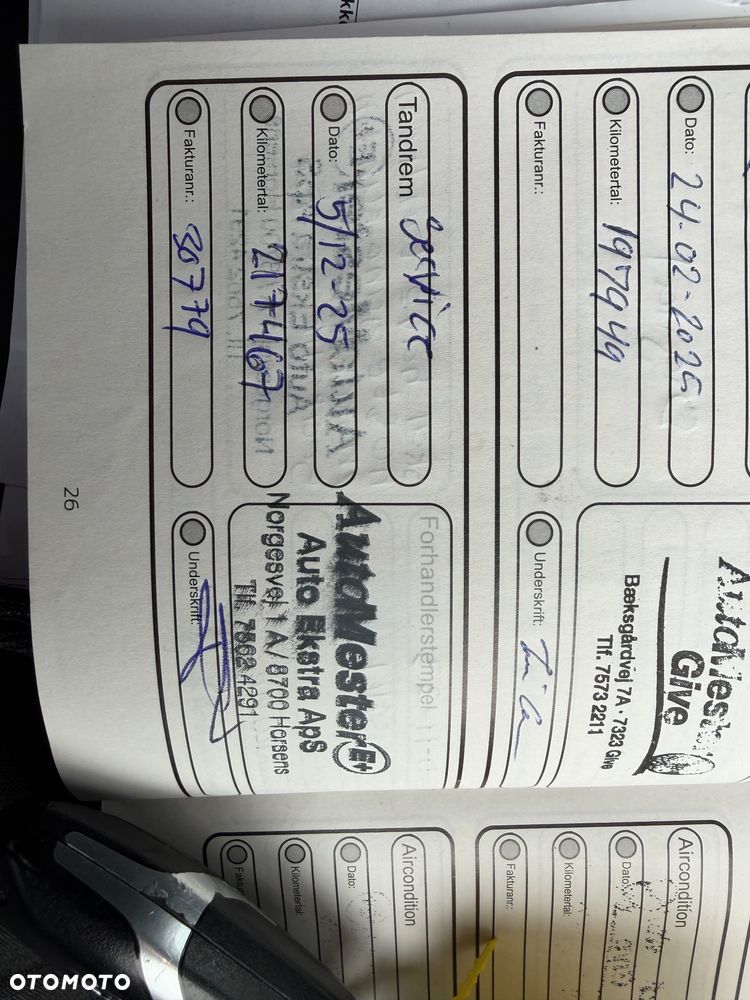 Dato: 24-02-2025
Kilometertal: 197949
Fakturanr.:
AutoMester
Give
Bæksgårdvej 7A · 7323 Give
Tlf. 7573 2211
Underskrift:
Tandrem Service
Dato: 5/12-25
Kilometertal: 217467
Fakturanr.: 30779
Forhandlerstempel
AutoMester E+
Auto Ekstra Aps
Norgesvej 1 A / 8700 Horsens
Tlf. 7562 4291
Underskrift:
26
Aircondition
Dato:
Kilometertal:
Fakturanr.:
Aircondition
Dato:
Kilometertal:
OTOMOTO